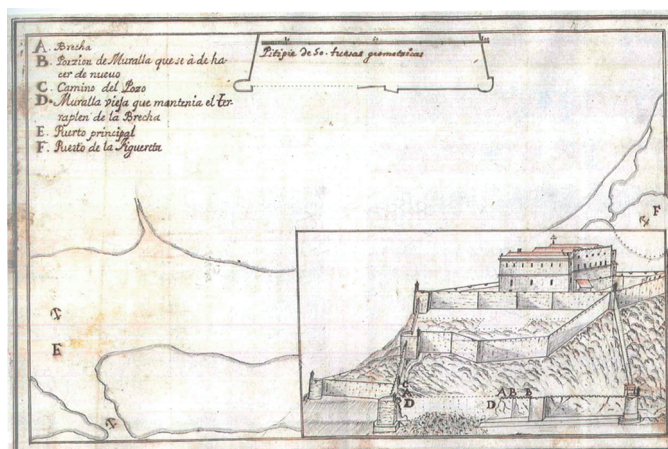 A. Brecha
B. Porzion de Muralla que se à de ha
cer de nueuo
C. Camino del Pozo
D. Muralla vieja que mantenia el ter
raplen de la Brecha
E. Puerto principal
F. Puerto de la Figuereta
Pitipie de 50. tuesas geometricas
F
E
C
D
D
A B B